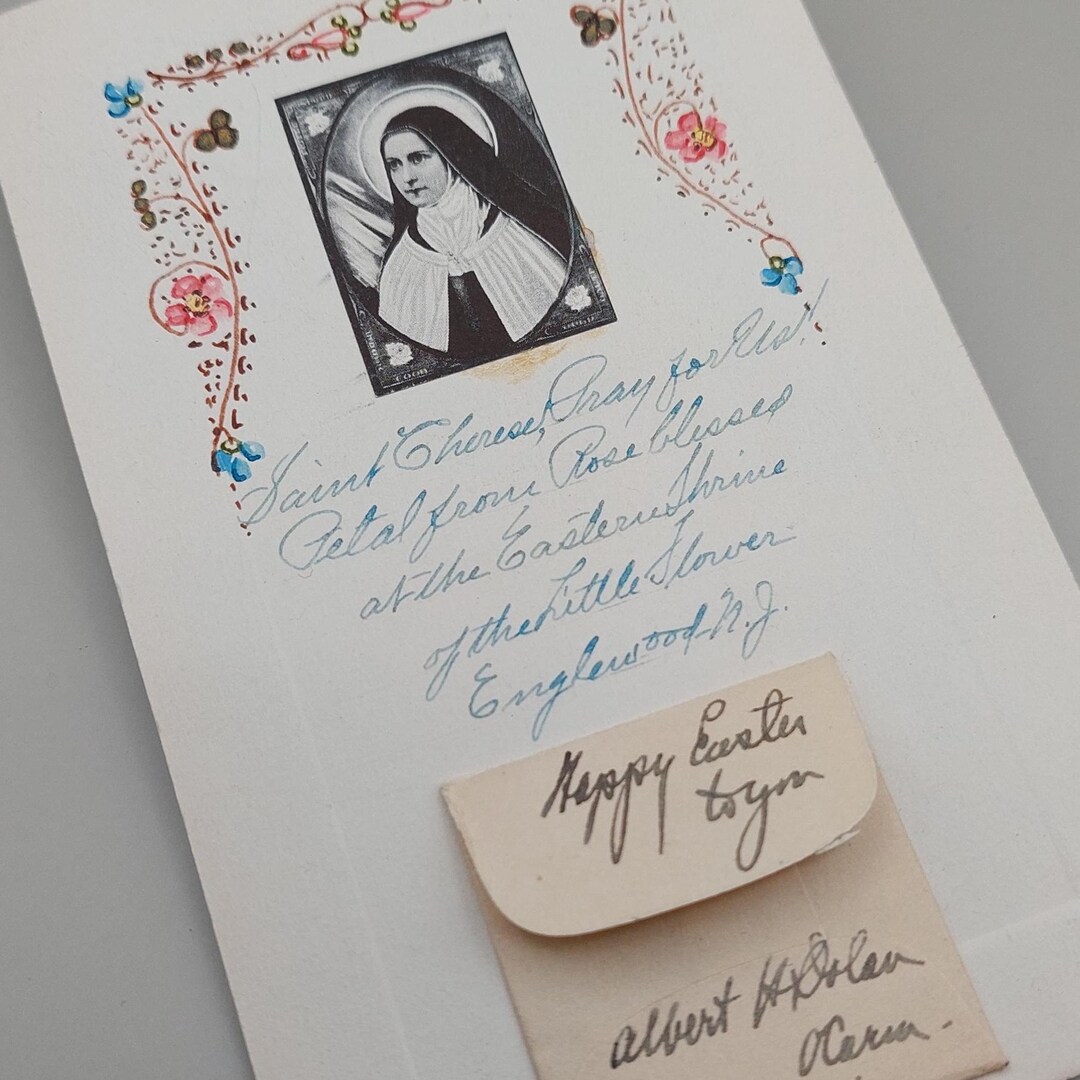 Saint Therese, Pray for Us!
Petal from Rose blessed
at the Eastern Shrine
of the Little Flower
Englewood-N.J.
Happy Easter
to you
Albert H Dolan
OCarm.